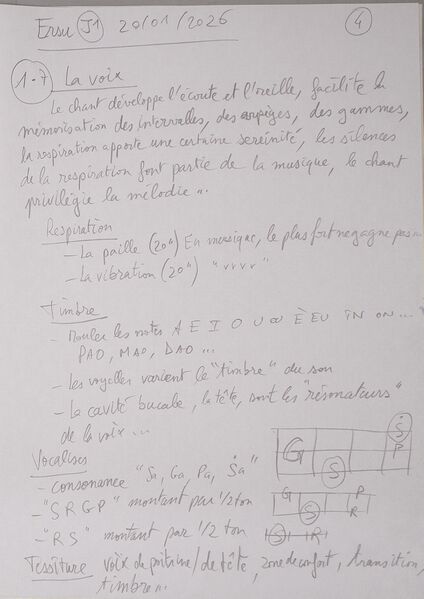 Ersu J1 20/01/2026 4
1-7 La voix
Le chant développe l'écoute et l'oreille, facilite la
mémorisation des intervalles, des arpièges, des gammes,
la respiration apporte une certaine sereinité, les silences
de la respiration font partie de la musique, le chant
privilégie la mélodie..
Respiration
- La paille (20") En musique, le plus fort ne gagne pas...
- La vibration (20") "vvvv"
Timbre
- Mouler les notes A E I O U OU È EU IN ON...
PAO, MAO, DAO...
- Les voyelles varient le "timbre" du son
- La cavité bucale, la tête, sont les "résonateurs"
de la voix...
Vocalises
- consonance "Sa, Ga, Pa, Ṡa"
- "S R G P" montant par 1/2 ton
- "R S" montant par 1/2 ton
G S Ṡ P
G S P R
S R
Tessiture voix de poitrine/de tête, zone de confort, transition,
timbre..